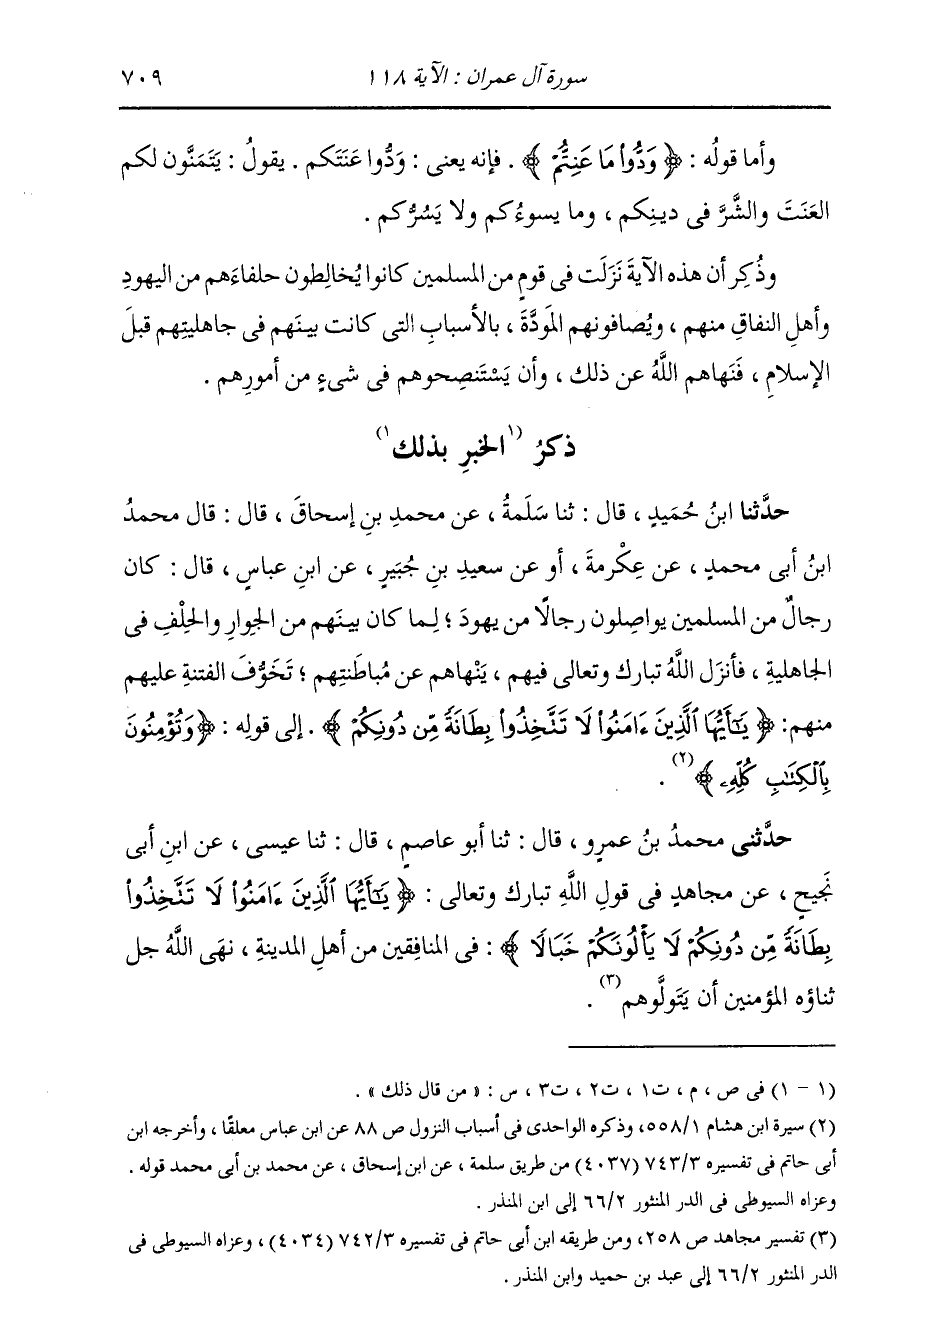 سورة آل عمران : الآية ١١٨ ٧٠٩
وأما قولُه : ﴿ وَدُّوا۟ مَا عَنِتُّمْ ﴾ . فإنه يعنى : وَدُّوا عَنَتَكم . يقولُ : يَتَمَنَّون لكم
العَنَتَ والشَّرَّ فى دينِكم ، وما يسوءُكم ولا يَسُرُّكم .
وذُكِر أن هذه الآيةَ نَزَلَت فى قومٍ من المسلمين كانوا يُخالِطون حلفاءَهم من اليهودِ
وأهلِ النفاقِ منهم ، ويُصافونهم المَودَّةَ ، بالأسبابِ التى كانت بينَهم فى جاهليتِهم قبلَ
الإسلامِ ، فَنَهاهم اللَّهُ عن ذلك ، وأن يَسْتَنصِحوهم فى شىءٍ من أمورِهم .
ذكرُ (١الخبرِ بذلك١)
حدَّثنا ابنُ حُمَيدٍ ، قال : ثنا سَلَمةُ ، عن محمدِ بنِ إسحاقَ ، قال : قال محمدُ
ابنُ أبى محمدٍ ، عن عِكْرمةَ ، أو عن سعيدِ بنِ جُبَيرٍ ، عن ابنِ عباسٍ ، قال : كان
رجالٌ من المسلمين يواصِلون رجالًا من يهودَ ؛ لِما كان بينَهم من الجِوارِ والحِلْفِ فى
الجاهليةِ ، فأنزَل اللَّهُ تبارك وتعالى فيهم ، يَنْهاهم عن مُباطَنتِهم ؛ تَخَوُّفَ الفتنةِ عليهم
منهم: ﴿ يَٰٓأَيُّهَا ٱلَّذِينَ ءَامَنُوا۟ لَا تَتَّخِذُوا۟ بِطَانَةً مِّن دُونِكُمْ ﴾ . إلى قولِه : ﴿ وَتُؤْمِنُونَ
بِٱلْكِتَٰبِ كُلِّهِۦ ﴾(٢) .
حدَّثنى محمدُ بنُ عمرٍو ، قال : ثنا أبو عاصمٍ ، قال : ثنا عيسى ، عن ابنِ أبى
نَجيحٍ ، عن مجاهدٍ فى قولِ اللَّهِ تبارك وتعالى : ﴿ يَٰٓأَيُّهَا ٱلَّذِينَ ءَامَنُوا۟ لَا تَتَّخِذُوا۟
بِطَانَةً مِّن دُونِكُمْ لَا يَأْلُونَكُمْ خَبَالًا ﴾ : فى المنافِقين من أهلِ المدينةِ ، نهَى اللَّهُ جل
ثناؤه المؤمنين أن يَتَولَّوهم(٣) .
(١ - ١) فى ص ، م ، ت١ ، ت٢ ، ت٣ ، س : « من قال ذلك » .
(٢) سيرة ابن هشام ٥٥٨/١، وذكره الواحدى فى أسباب النزول ص ٨٨ عن ابن عباس معلقًا ، وأخرجه ابن
أبى حاتم فى تفسيره ٧٤٣/٣ (٤٠٣٧) من طريق سلمة ، عن ابن إسحاق ، عن محمد بن أبى محمد قوله .
وعزاه السيوطى فى الدر المنثور ٦٦/٢ إلى ابن المنذر .
(٣) تفسير مجاهد ص ٢٥٨، ومن طريقه ابن أبى حاتم فى تفسيره ٧٤٢/٣ (٤٠٣٤) ، وعزاه السيوطى فى
الدر المنثور ٦٦/٢ إلى عبد بن حميد وابن المنذر .